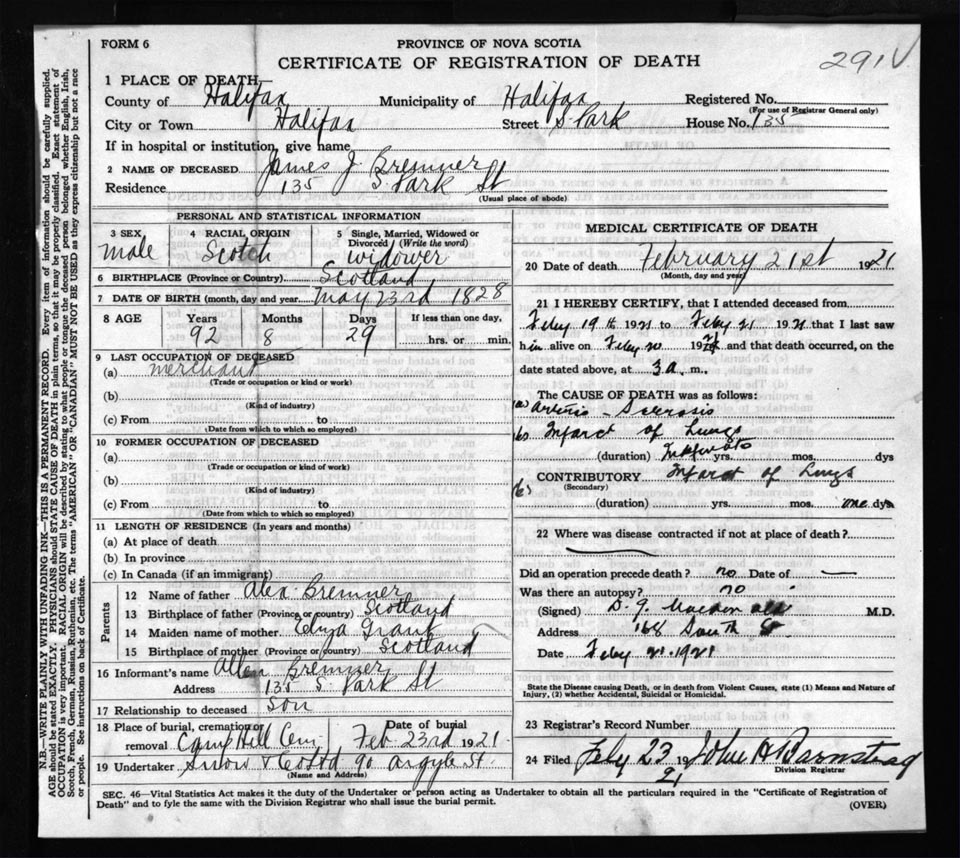 FORM 6
PROVINCE OF NOVA SCOTIA
CERTIFICATE OF REGISTRATION OF DEATH
291 V
1 PLACE OF DEATH—
County of Halifax Municipality of Halifax Registered No.
(For use of Registrar General only)
City or Town Halifax Street S. Park House No. 135
If in hospital or institution, give name
2 NAME OF DECEASED James J. Bremner
Residence 135 S. Park St
(Usual place of abode)
PERSONAL AND STATISTICAL INFORMATION
3 SEX male
4 RACIAL ORIGIN Scotch
5 Single, Married, Widowed or Divorced (Write the word) widower
6 BIRTHPLACE (Province or Country) Scotland
7 DATE OF BIRTH (month, day and year) May 23rd 1828
8 AGE Years Months Days If less than one day,
92 8 29 hrs. or min.
9 LAST OCCUPATION OF DECEASED
(a) merchant
(Trade or occupation or kind or work)
(b)
(Kind of industry)
(c) From to
(Date from which to which so employed)
10 FORMER OCCUPATION OF DECEASED
(a)
(Trade or occupation or kind of work)
(b)
(Kind of industry)
(c) From to
(Date from which to which so employed)
11 LENGTH OF RESIDENCE (In years and months)
(a) At place of death
(b) In province
(c) In Canada (if an immigrant)
Parents
12 Name of father Alex. Bremner
13 Birthplace of father (Province or country) Scotland
14 Maiden name of mother Eliza Grant
15 Birthplace of mother (Province or country) Scotland
16 Informant's name Allen Bremner
Address 135 S. Park St
17 Relationship to deceased Son
18 Place of burial, cremation or removal Camp Hill Cem. Date of burial Feb. 23rd 1921.
19 Undertaker Snow & Co Ltd 90 Argyle St.
(Name and Address)
MEDICAL CERTIFICATE OF DEATH
20 Date of death February 21st 1921
(Month, day and year)
21 I HEREBY CERTIFY, that I attended deceased from
Feby 19th 1921 to Feby 21 1921 that I last saw
him alive on Feby 20 192 and that death occurred, on the
date stated above, at 3 a. m.
The CAUSE OF DEATH was as follows:
(a) Sclerosis
(b) Infarct of Lungs
(duration) yrs. mos. dys
CONTRIBUTORY Infarct of Lungs
(Secondary)
(duration) yrs. mos. one dys
22 Where was disease contracted if not at place of death?
Did an operation precede death? no Date of —
Was there an autopsy? no
(Signed) M.D.
Address 168 South St
Date Feby 21. 1921
State the Disease causing Death, or in death from Violent Causes, state (1) Means and Nature of
Injury, (2) whether Accidental, Suicidal or Homicidal.
23 Registrar's Record Number
24 Filed Feby 23 1921 John H Barnstead
Division Registrar
SEC. 46—Vital Statistics Act makes it the duty of the Undertaker or person acting as Undertaker to obtain all the particulars required in the "Certificate of Registration of Death"
and to fyle the same with the Division Registrar who shall issue the burial permit.
(OVER)
N.B.—WRITE PLAINLY WITH UNFADING INK—THIS IS A PERMANENT RECORD. Every item of information should be carefully supplied.
AGE should be stated EXACTLY. PHYSICIANS should STATE CAUSE OF DEATH in plain terms, so that it may be properly classified. Exact statement of
OCCUPATION is very important. RACIAL ORIGIN will be described by stating to what people or tongue the deceased person belonged whether English, Irish,
Scotch, French, German, Russian, Ruthenian, etc. The terms "AMERICAN" OR "CANADIAN" MUST NOT BE USED as they express citizenship but not a race
or people. See instructions on back of Certificate.